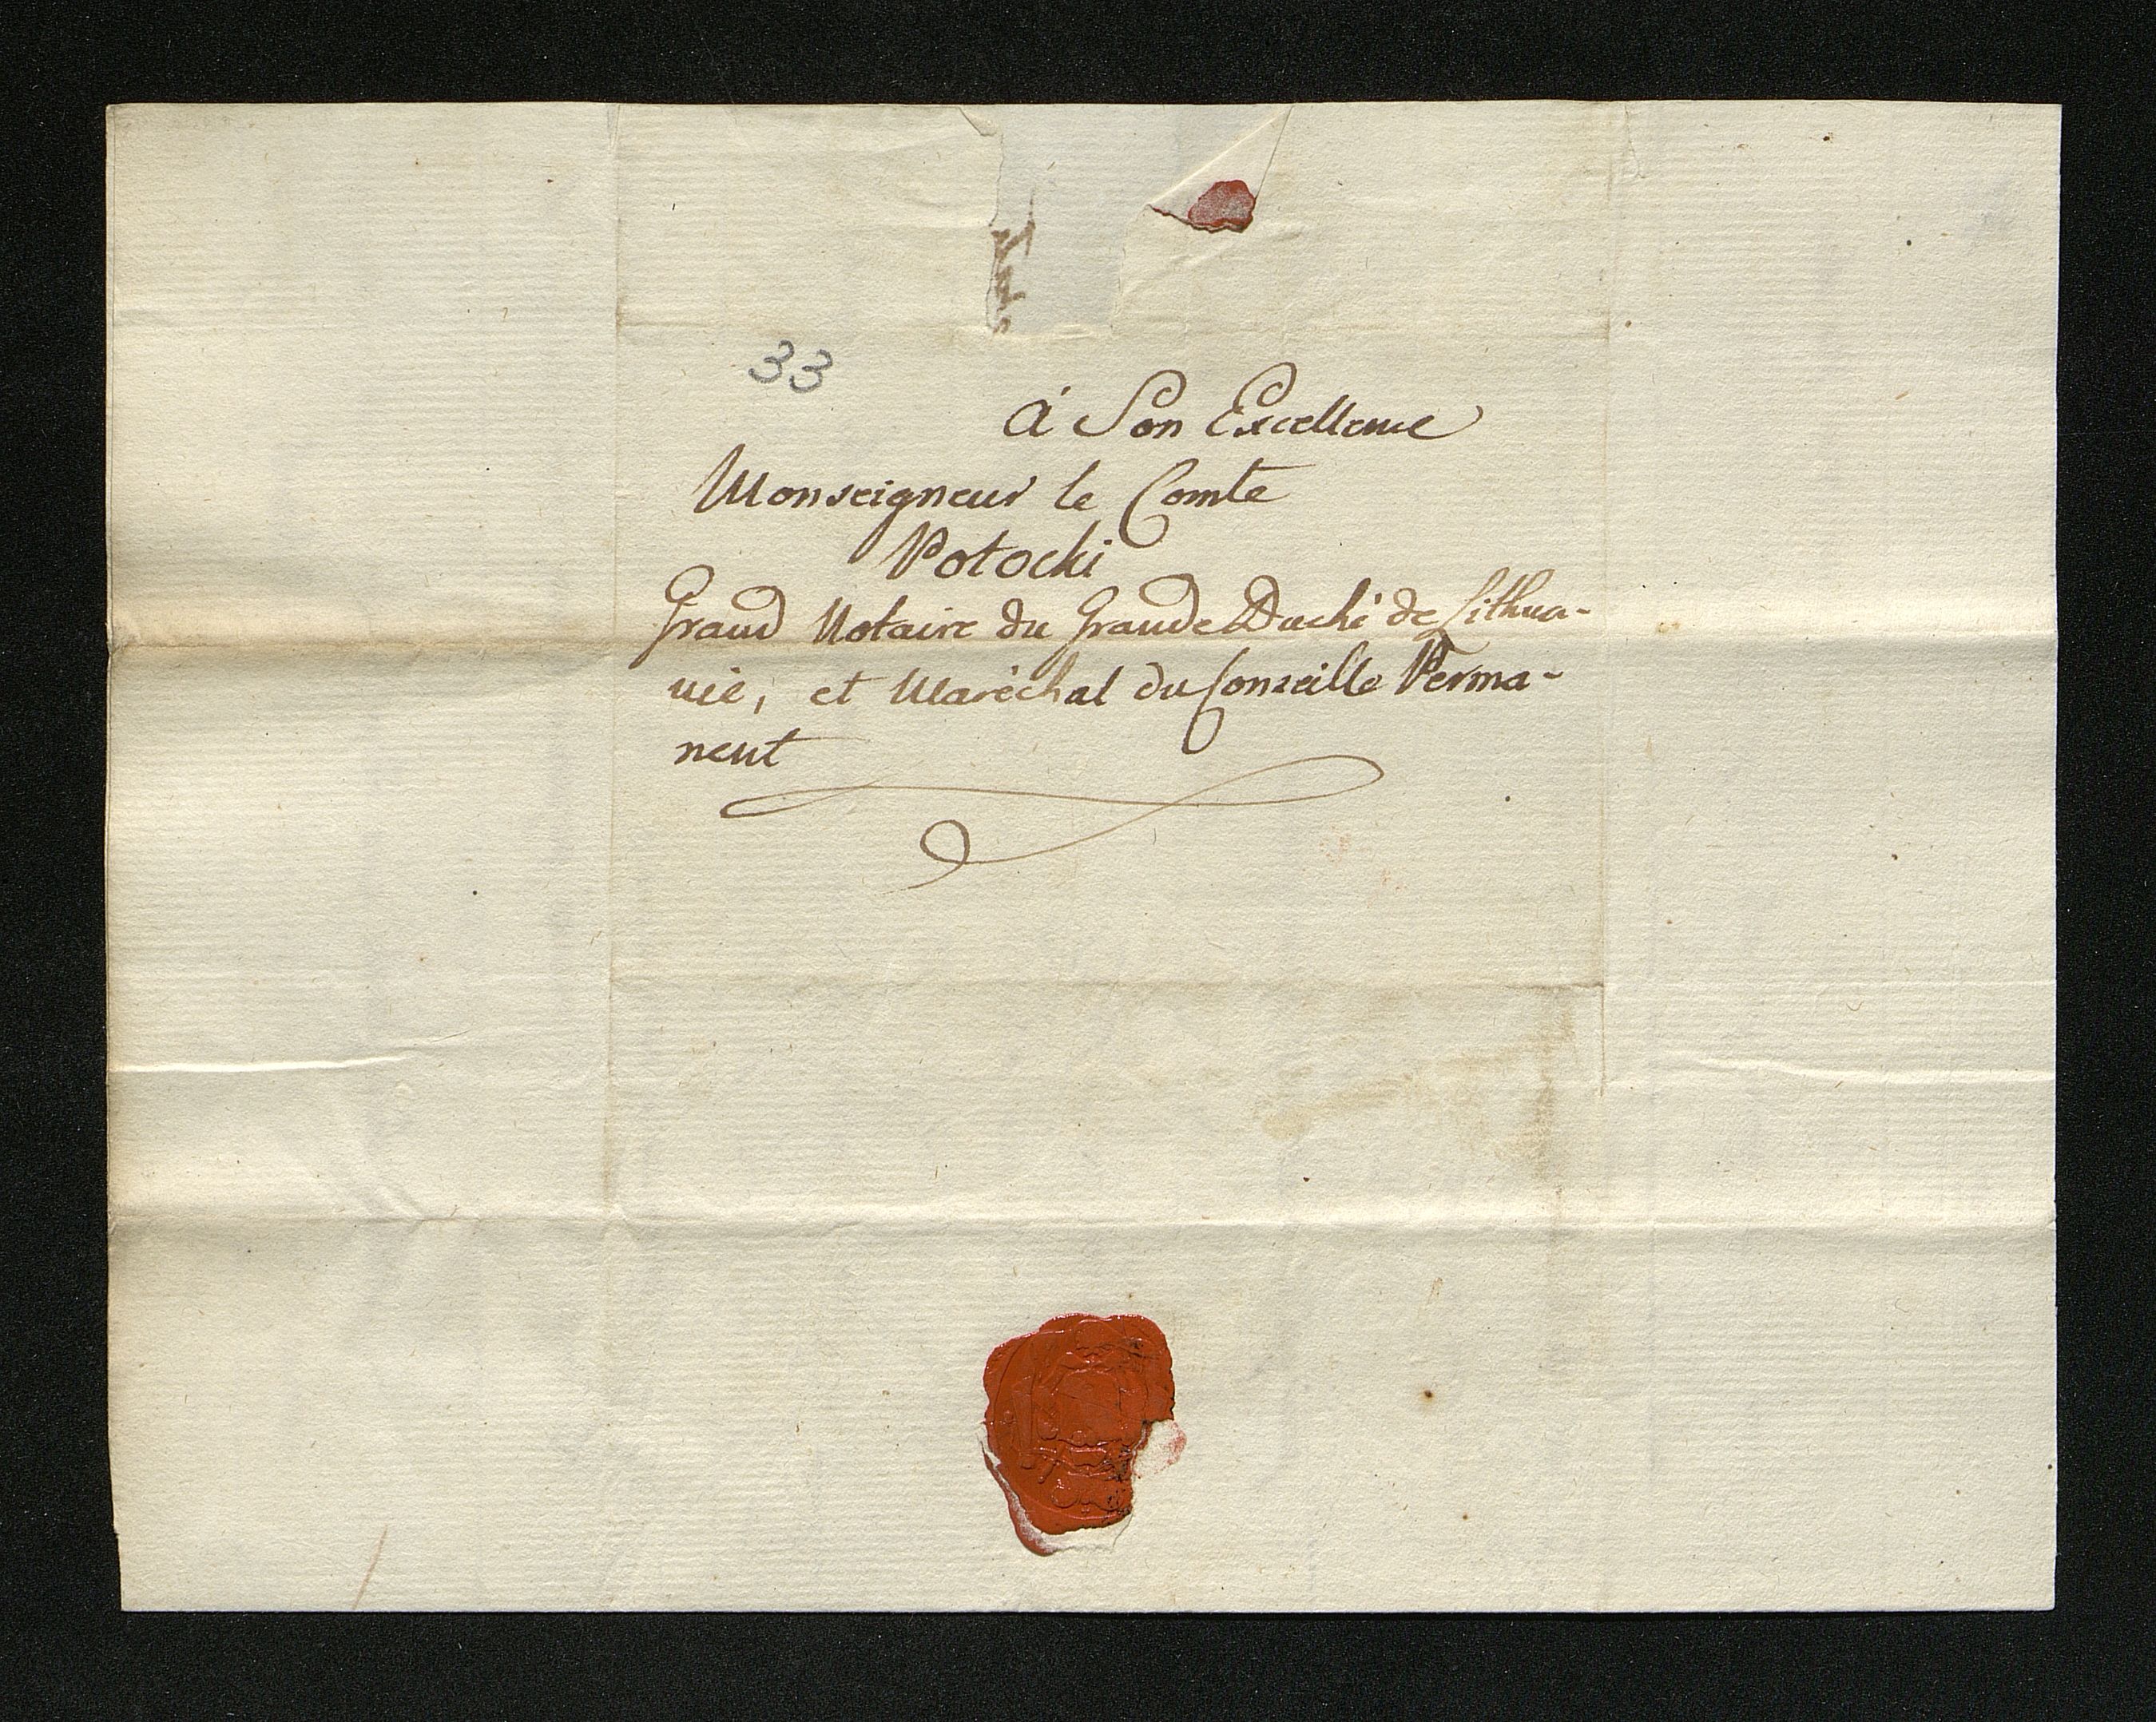 33
à Son Excellence
Monseigneur le Comte
Potocki
Grand Notaire du Grande Duché de Lithua-
nie, et Maréchal du Conseille Perma-
nent